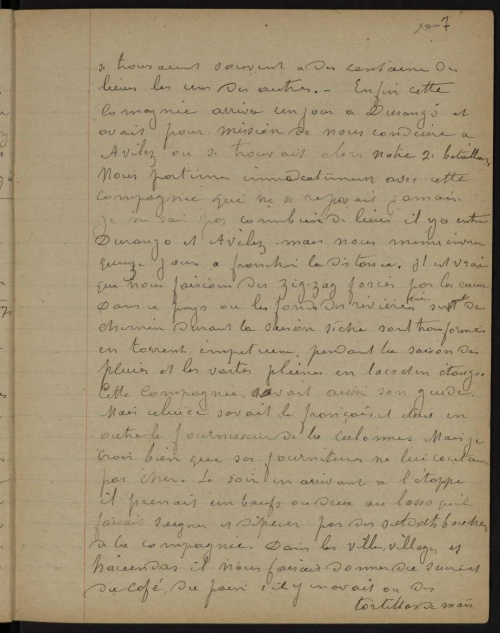 107
se trouvaient souvent a des centaine de
lieues les uns des autres. - Enfin cette
Comagnie arriva un jour a Durango et
avait pour mission de nous conduire a
Avilez ou se trouvait alors notre 2e bataillon
Nous partimes immediatement avec cette
compagnie qui ne se reposait jamais.
Je ne sais pas combien de lieues il y a entre
Durango et Avilez mais nous mimes environ
quinze jours a franchir la distance. Il est vrai
que nous faisions des zig-zag forcés par les eaux
Dans ce pays ou les fonds des rivières qui servent de
chemin durant la saison sèche sont transformés
en torrent impetueux pendant la saison des
pluies et les vastes plaines en lacs et en étangs.
Cette Compagnie avait aussi son guide.
Mais celui ci savait le français et était en
outre le fournisseur de la colonne. Mais je
crois bien que ses fournitures ne lui coutaient
pas cher. Le soir en arrivant a l'étappe
il prenait un bœufs ou deux au lasso qu'il
faisait saigner et dépecer par des soldats bouchers
de la compagnie. Dans les villes, villages et
haciendas il nous faisait donner du sucre et
du café, du pain s'il y en avait ou des
tortillas de maïs